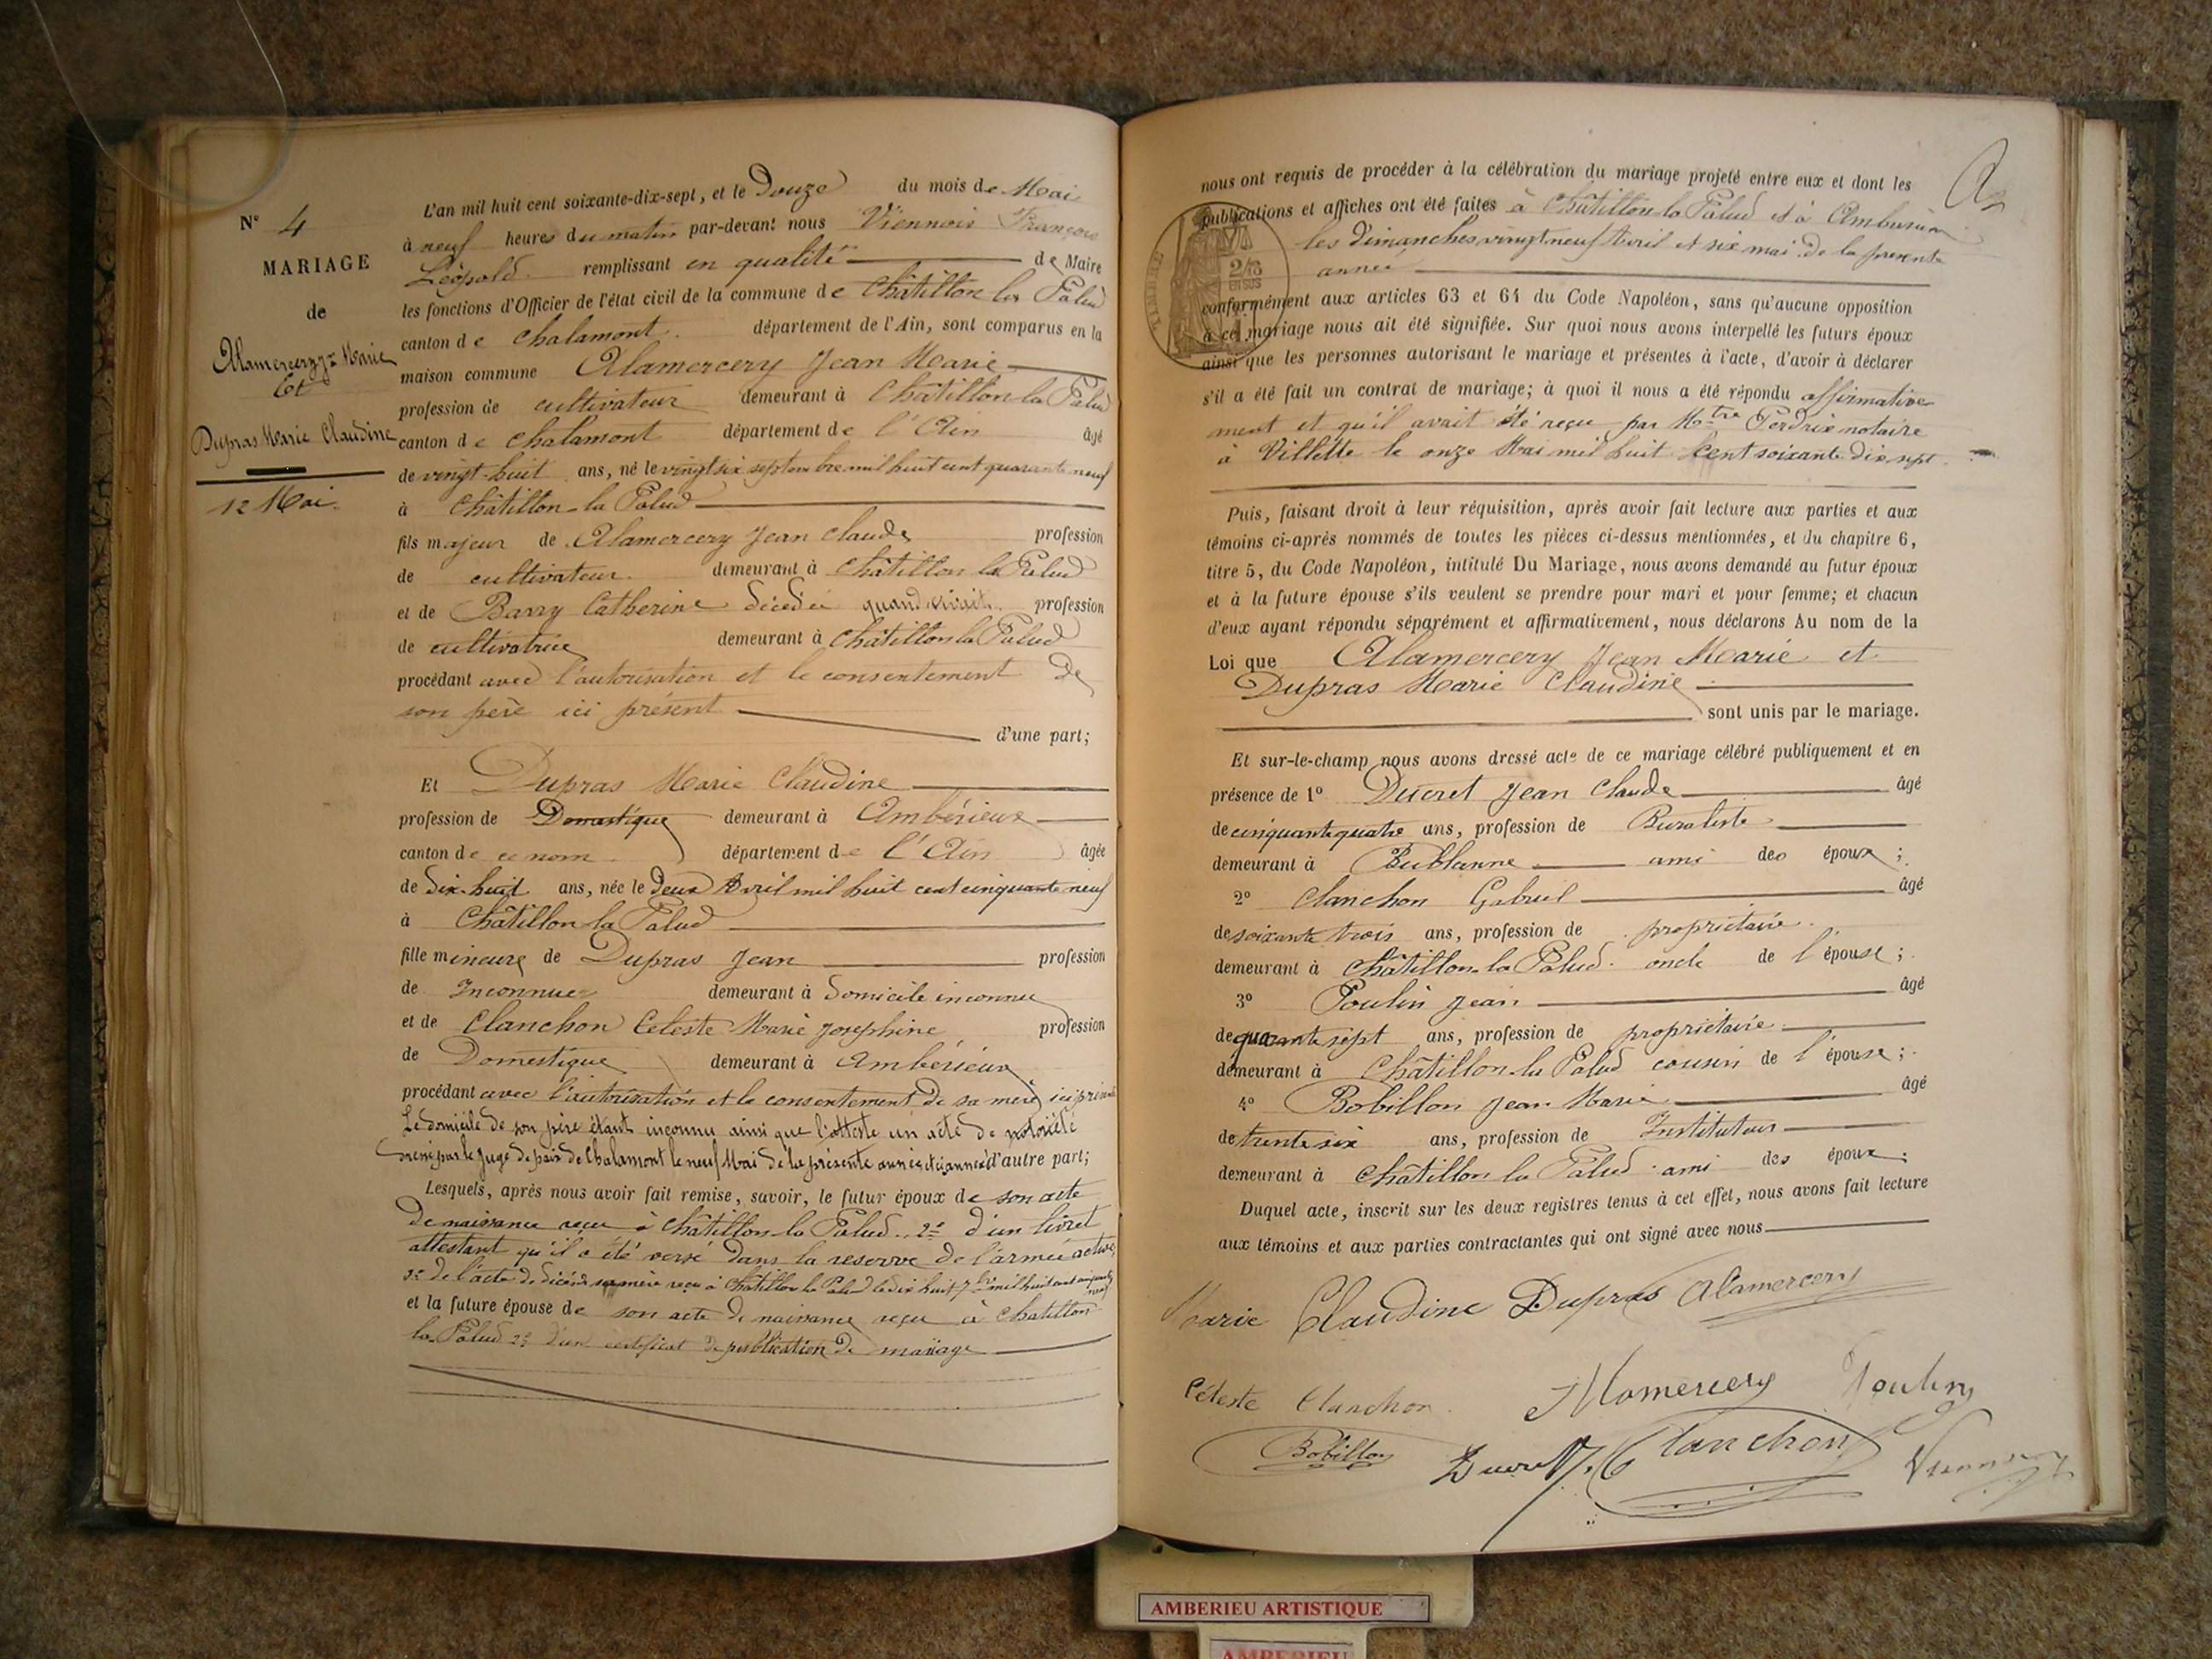 N° 4
MARIAGE
de
Alamercery Jn Marie
Et
Dupras Marie Claudine
12 Mai
L'an mil huit cent soixante-dix-sept, et le Douze du mois de Mai
à neuf heures du matin par-devant nous Viennois François
Léopold remplissant en qualité de Maire
les fonctions d'Officier de l'état civil de la commune de Châtillon la Palud
canton de Chalamont département de l'Ain, sont comparus en la
maison commune Alamercery Jean Marie
profession de cultivateur demeurant à Châtillon la Palud
canton de Chalamont département de l'Ain âgé
de vingt-huit ans, né le vingt six septembre mil huit cent quarante neuf
à Châtillon-la Palud
fils majeur de Alamercery Jean Claude profession
de cultivateur demeurant à Châtillon la Palud
et de Barry Catherine décédée quand vivait profession
de cultivatrice demeurant à Châtillon la Palud
procédant avec l'autorisation et le consentement de
son père ici présent
d'une part;
Et Dupras Marie Claudine
profession de Domestique demeurant à Ambérieux
canton de ce nom département de l'Ain âgée
de dix-huit ans, née le deux Avril mil huit cent cinquante neuf
à Châtillon la Palud
fille mineure de Dupras Jean profession
de Inconnue demeurant à domicile inconnu
et de Clanchon Céleste Marie Joséphine profession
de Domestique demeurant à Ambérieux
procédant avec l'autorisation et le consentement de sa mère ici présente
Le domicile de son père étant inconnu ainsi que l'atteste un acte de notoriété
par le Juge de paix de Chalamont le neuf Mai de la présente année d'autre part;
Lesquels, après nous avoir fait remise, savoir, le futur époux de son acte
de naissance reçu à Châtillon-la Palud 2° d'un livret
attestant qu'il a été versé dans la reserve de l'armée active,
3° de l'acte de décès de sa mère reçu à Châtillon la Palud le dix huit 7bre mil huit cent cinquante
neuf
et la future épouse de son acte de naissance reçu à Chatillon
la Palud 2° d'un certificat de publication de mariage
nous ont requis de procéder à la célébration du mariage projeté entre eux et dont les
publications et affiches ont été faites à Châtillon la Palud et à Ambérieux
les dimanches vingt neuf Avril et six mai de la presente
année
conformément aux articles 63 et 64 du Code Napoléon, sans qu'aucune opposition
à cet mariage nous ait été signifiée. Sur quoi nous avons interpellé les futurs époux
ainsi que les personnes autorisant le mariage et présentes à l'acte, d'avoir à déclarer
s'il a été fait un contrat de mariage; à quoi il nous a été répondu affirmative-
ment et qu'il avait été reçu par Mtre Perdrix notaire
à Villette le onze Mai mil huit cent soixante dix sept
Puis, faisant droit à leur réquisition, après avoir fait lecture aux parties et aux
témoins ci-après nommés de toutes les pièces ci-dessus mentionnées, et du chapitre 6,
titre 5, du Code Napoléon, intitulé Du Mariage, nous avons demandé au futur époux
et à la future épouse s'ils veulent se prendre pour mari et pour femme; et chacun
d'eux ayant répondu séparément et affirmativement, nous déclarons Au nom de la
Loi que Alamercery Jean Marie et
Dupras Marie Claudine
sont unis par le mariage.
Et sur-le-champ nous avons dressé acte de ce mariage célébré publiquement et en
présence de 1° Ducret Jean Claude âgé
de cinquante quatre ans, profession de Buraliste
demeurant à Bublanne ami des époux;
2° Clanchon Gabriel âgé
de soixante trois ans, profession de propriétaire
demeurant à Châtillon-la Palud oncle de l'épouse;
3° Poulin Jean âgé
de quarante sept ans, profession de propriétaire
demeurant à Châtillon-la Palud cousin de l'épouse;
4° Bobillon Jean-Marie âgé
de trente six ans, profession de Instituteur
demeurant à Châtillon la Palud ami des époux;
Duquel acte, inscrit sur les deux registres tenus à cet effet, nous avons fait lecture
aux témoins et aux parties contractantes qui ont signé avec nous
Marie Claudine Dupras Alamercery
Céleste Clanchon Alamercery Poulin
Bobillon Ducret J. Clanchon Viennois
AMBERIEU ARTISTIQUE
AMBERIEU